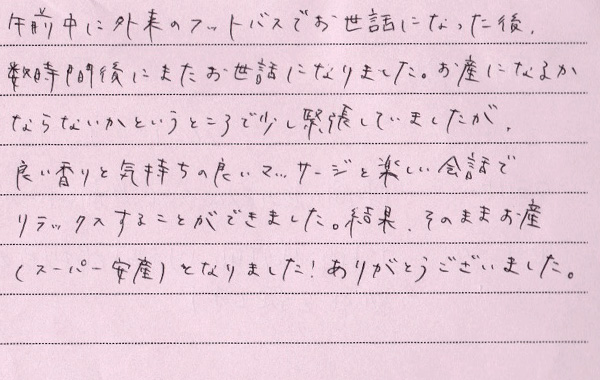 午前中に外来のフットバスでお世話になった後、
数時間後にまたお世話になりました。お産になるか
ならないかというところで少し緊張していましたが、
良い香りと気持ちの良いマッサージと楽しい会話で
リラックスすることができました。結果、そのままお産
(スーパー安産)となりました!ありがとうございました。